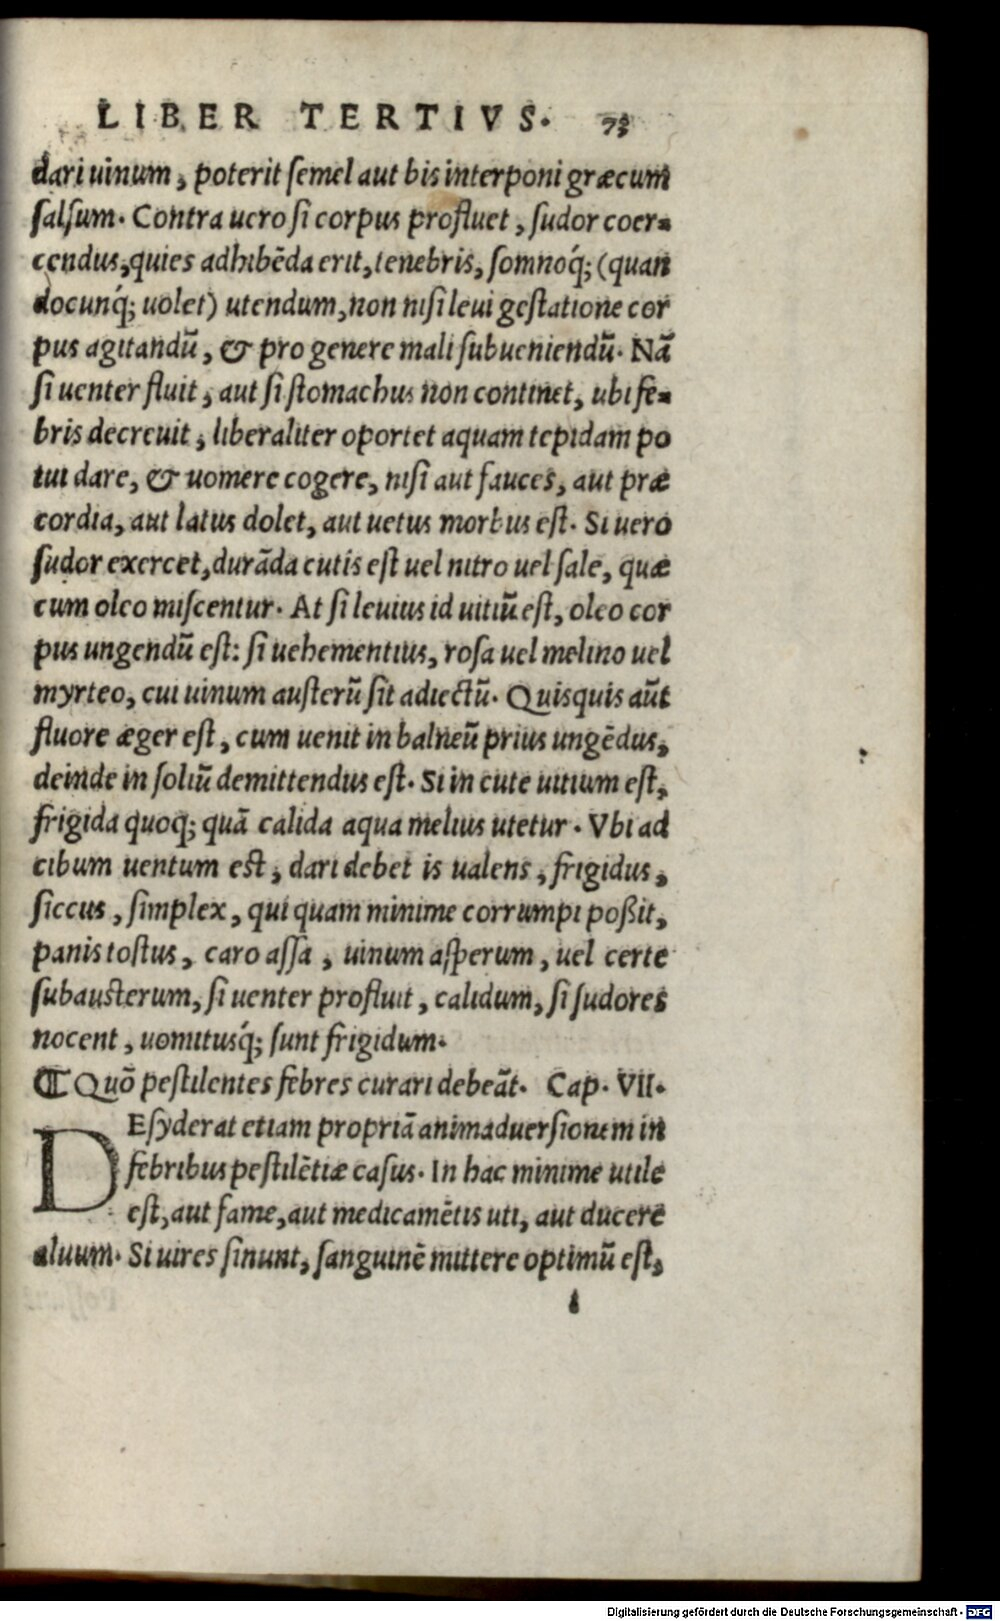 LIBER TERTIVS. 73
dari uinum, poterit semel aut bis interponi græcum
salsum. Contra uero si corpus profluet, sudor coer-
cendus, quies adhibēda erit, tenebris, somnoq́; (quan
docunq́; uolet) utendum, non nisi leui gestatione cor
pus agitandū, & pro genere mali subueniendū. Nā
si uenter fluit, aut si stomachus non continet, ubi fe-
bris decreuit, liberaliter oportet aquam tepidam po
tui dare, & uomere cogere, nisi aut fauces, aut præ
cordia, aut latus dolet, aut uetus morbus est. Si uero
sudor exercet, durāda cutis est uel nitro uel sale, quæ
cum oleo miscentur. At si leuius id uitiū est, oleo cor
pus ungendū est: si uehementius, rosa uel melino uel
myrteo, cui uinum austerū sit adiectū. Quisquis aūt
fluore æger est, cum uenit in balneū prius ungēdus,
deinde in soliū demittendus est. Si in cute uitium est,
frigida quoq; quā calida aqua melius utetur. Vbi ad
cibum uentum est, dari debet is ualens, frigidus,
siccus, simplex, qui quam minime corrumpi poßit,
panis tostus, caro assa, uinum asperum, uel certe
subausterum, si uenter profluit, calidum, si sudores
nocent, uomitusq́; sunt frigidum.
¶ Quō pestilentes febres curari debeāt. Cap. VII.
DEsyderat etiam propriā animaduersionem in
febribus pestilētiæ casus. In hac minime utile
est, aut fame, aut medicamētis uti, aut ducere
aluum. Si uires sinunt, sanguinē mittere optimū est,
Digitalisierung gefördert durch die Deutsche Forschungsgemeinschaft - DFG